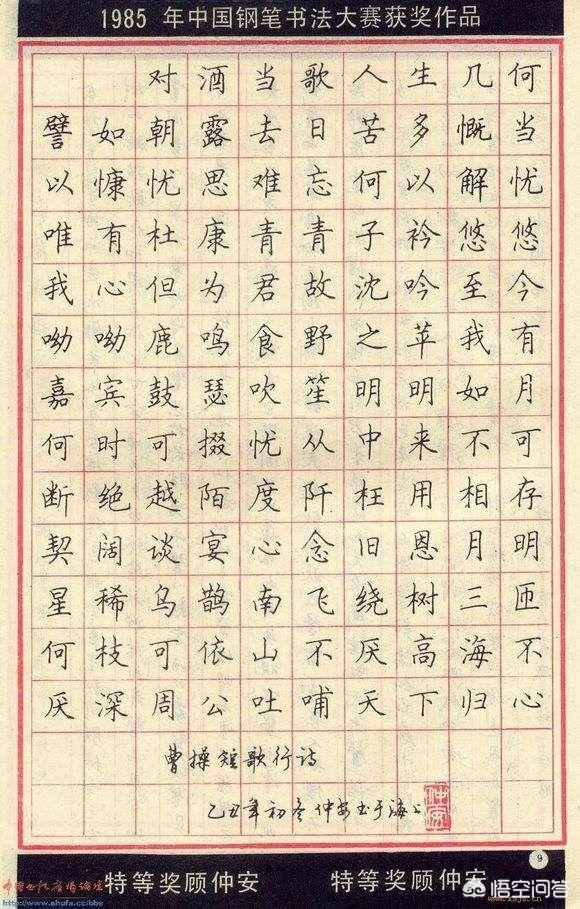 1985 年中国钢笔书法大赛获奖作品
对酒当歌人生几何
譬如朝露去日苦多慨当
以慷忧思难忘何以解忧
唯有杜康青青子衿悠悠
我心但为君故沈吟至今
呦呦鹿鸣食野之苹我有
嘉宾鼓瑟吹笙明明如月
何时可掇忧从中来不可
断绝越陌度阡枉用相存
契阔谈宴心念旧恩月明
星稀乌鹊南飞绕树三匝
何枝可依山不厌高海不
厌深周公吐哺天下归心
曹操短歌行诗
乙丑年初冬仲安书于海上
仲安
9
特等奖顾仲安 特等奖顾仲安
www.shufa.cc/bbs
悟空问答